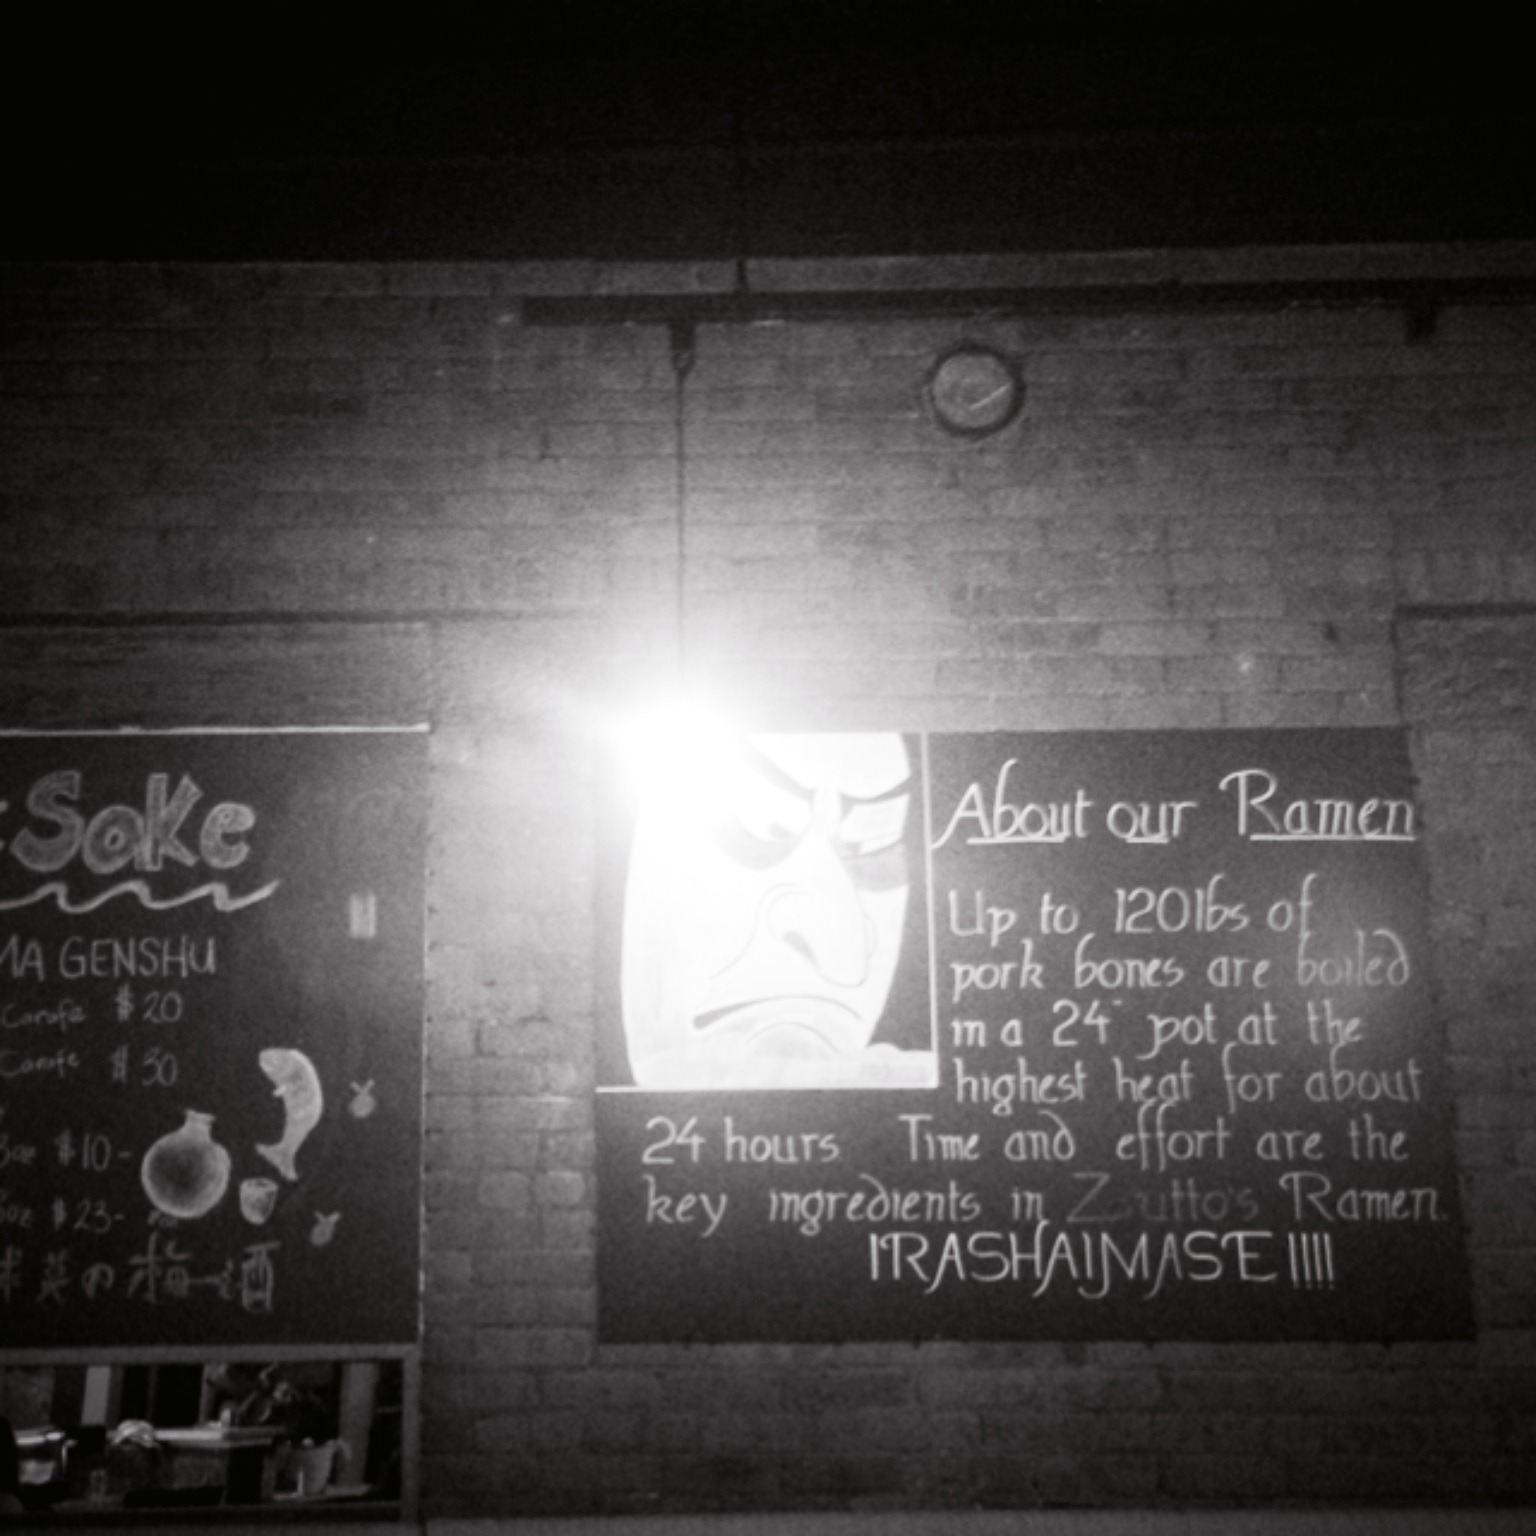 Sake
MA GENSHU
Carafe $20
Carafe $30
$10-
$23-
の梅酒
About our Ramen
Up to 120lbs of
pork bones are boiled
in a 24" pot at the
highest heat for about
24 hours Time and effort are the
key ingredients in Zutto's Ramen.
IRASHAIMASE !!!!